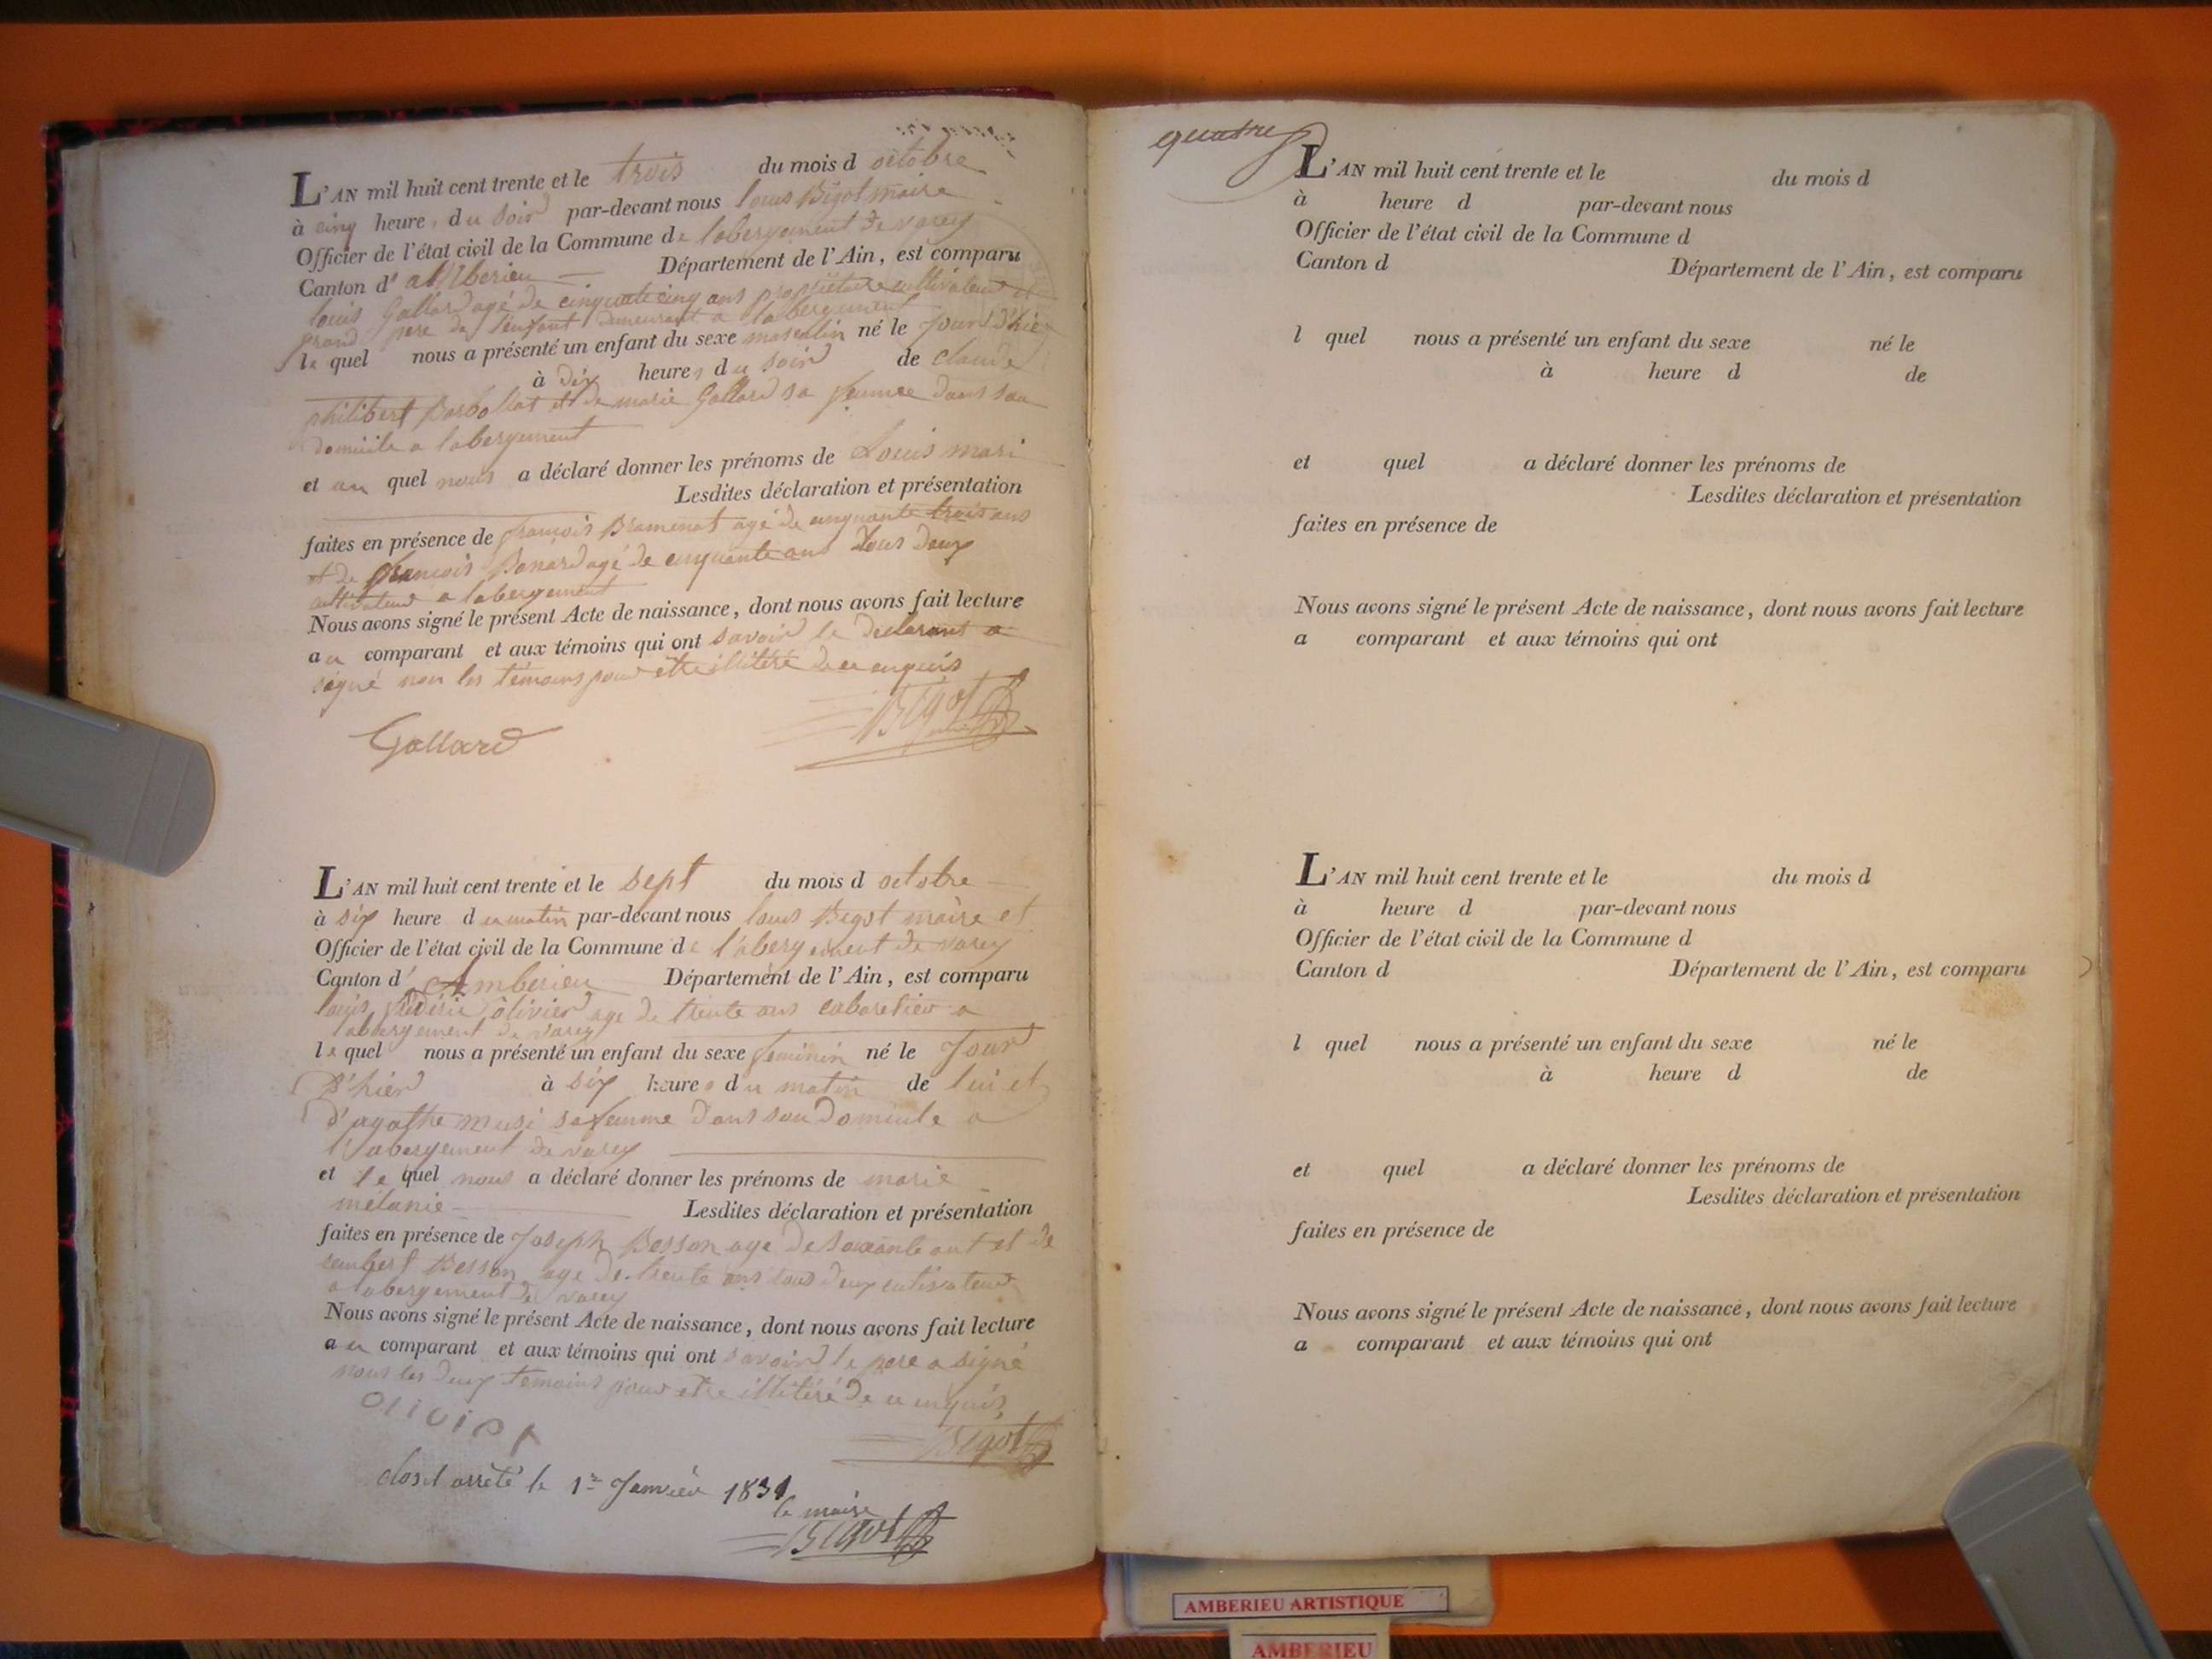 L'AN mil huit cent trente et le trois du mois d octobre
à cinq heures du soir par-devant nous louis Bigot maire
Officier de l'état civil de la Commune de labergement de varey
Canton d'ambérieu Département de l'Ain, est comparu
louis Gallard agé de cinquante cinq ans propriétaire cultivateur et
grand pere de l'enfant demeurant a labergement
le quel nous a présenté un enfant du sexe masculin né le jour d'hier
à dix heures du soir de claude
philibert et de marie Gallard sa femme dans son
domicile a labergement
et au quel nous a déclaré donner les prénoms de Louis mari
Lesdites déclaration et présentation
faites en présence de françois agé de cinquante trois ans
et de françois agé de cinquante ans tous deux
cultivateur a labergement
Nous avons signé le présent Acte de naissance, dont nous avons fait lecture
au comparant et aux témoins qui ont savoir le declarant a
signé non les témoins pour etre illitéré de ce enquis
Bigot
Gallard
L'AN mil huit cent trente et le sept du mois d octobre
à six heure du matin par-devant nous louis Bigot maire et
Officier de l'état civil de la Commune de l'abergement de varey
Canton d'Amberieu Département de l'Ain, est comparu
louis olivier age de trente ans cabaretier a
labergement de varey
le quel nous a présenté un enfant du sexe feminin né le jour
d'hier à six heures du matin de lui et
d'agathe musi sa femme dans son domicile a
l'abergement de varey
et le quel nous a déclaré donner les prénoms de marie
mélanie Lesdites déclaration et présentation
faites en présence de Joseph Besson age de soixante ant et de
Besson age de trente ans tous deux cultivateur
a labergement de varey
Nous avons signé le présent Acte de naissance, dont nous avons fait lecture
au comparant et aux témoins qui ont savoir le pere a signé
nous les deux temoins pour etre illitéré de ce enquis
olivier
Bigot
clos et arrêté le 1er Janvier 1831
le maire
Bigot
quatre
L'AN mil huit cent trente et le du mois d
à heure d par-devant nous
Officier de l'état civil de la Commune d
Canton d Département de l'Ain, est comparu
l quel nous a présenté un enfant du sexe né le
à heure d de
et quel a déclaré donner les prénoms de
Lesdites déclaration et présentation
faites en présence de
Nous avons signé le présent Acte de naissance, dont nous avons fait lecture
a comparant et aux témoins qui ont
L'AN mil huit cent trente et le du mois d
à heure d par-devant nous
Officier de l'état civil de la Commune d
Canton d Département de l'Ain, est comparu
l quel nous a présenté un enfant du sexe né le
à heure d de
et quel a déclaré donner les prénoms de
Lesdites déclaration et présentation
faites en présence de
Nous avons signé le présent Acte de naissance, dont nous avons fait lecture
a comparant et aux témoins qui ont
AMBERIEU ARTISTIQUE
AMBERIEU